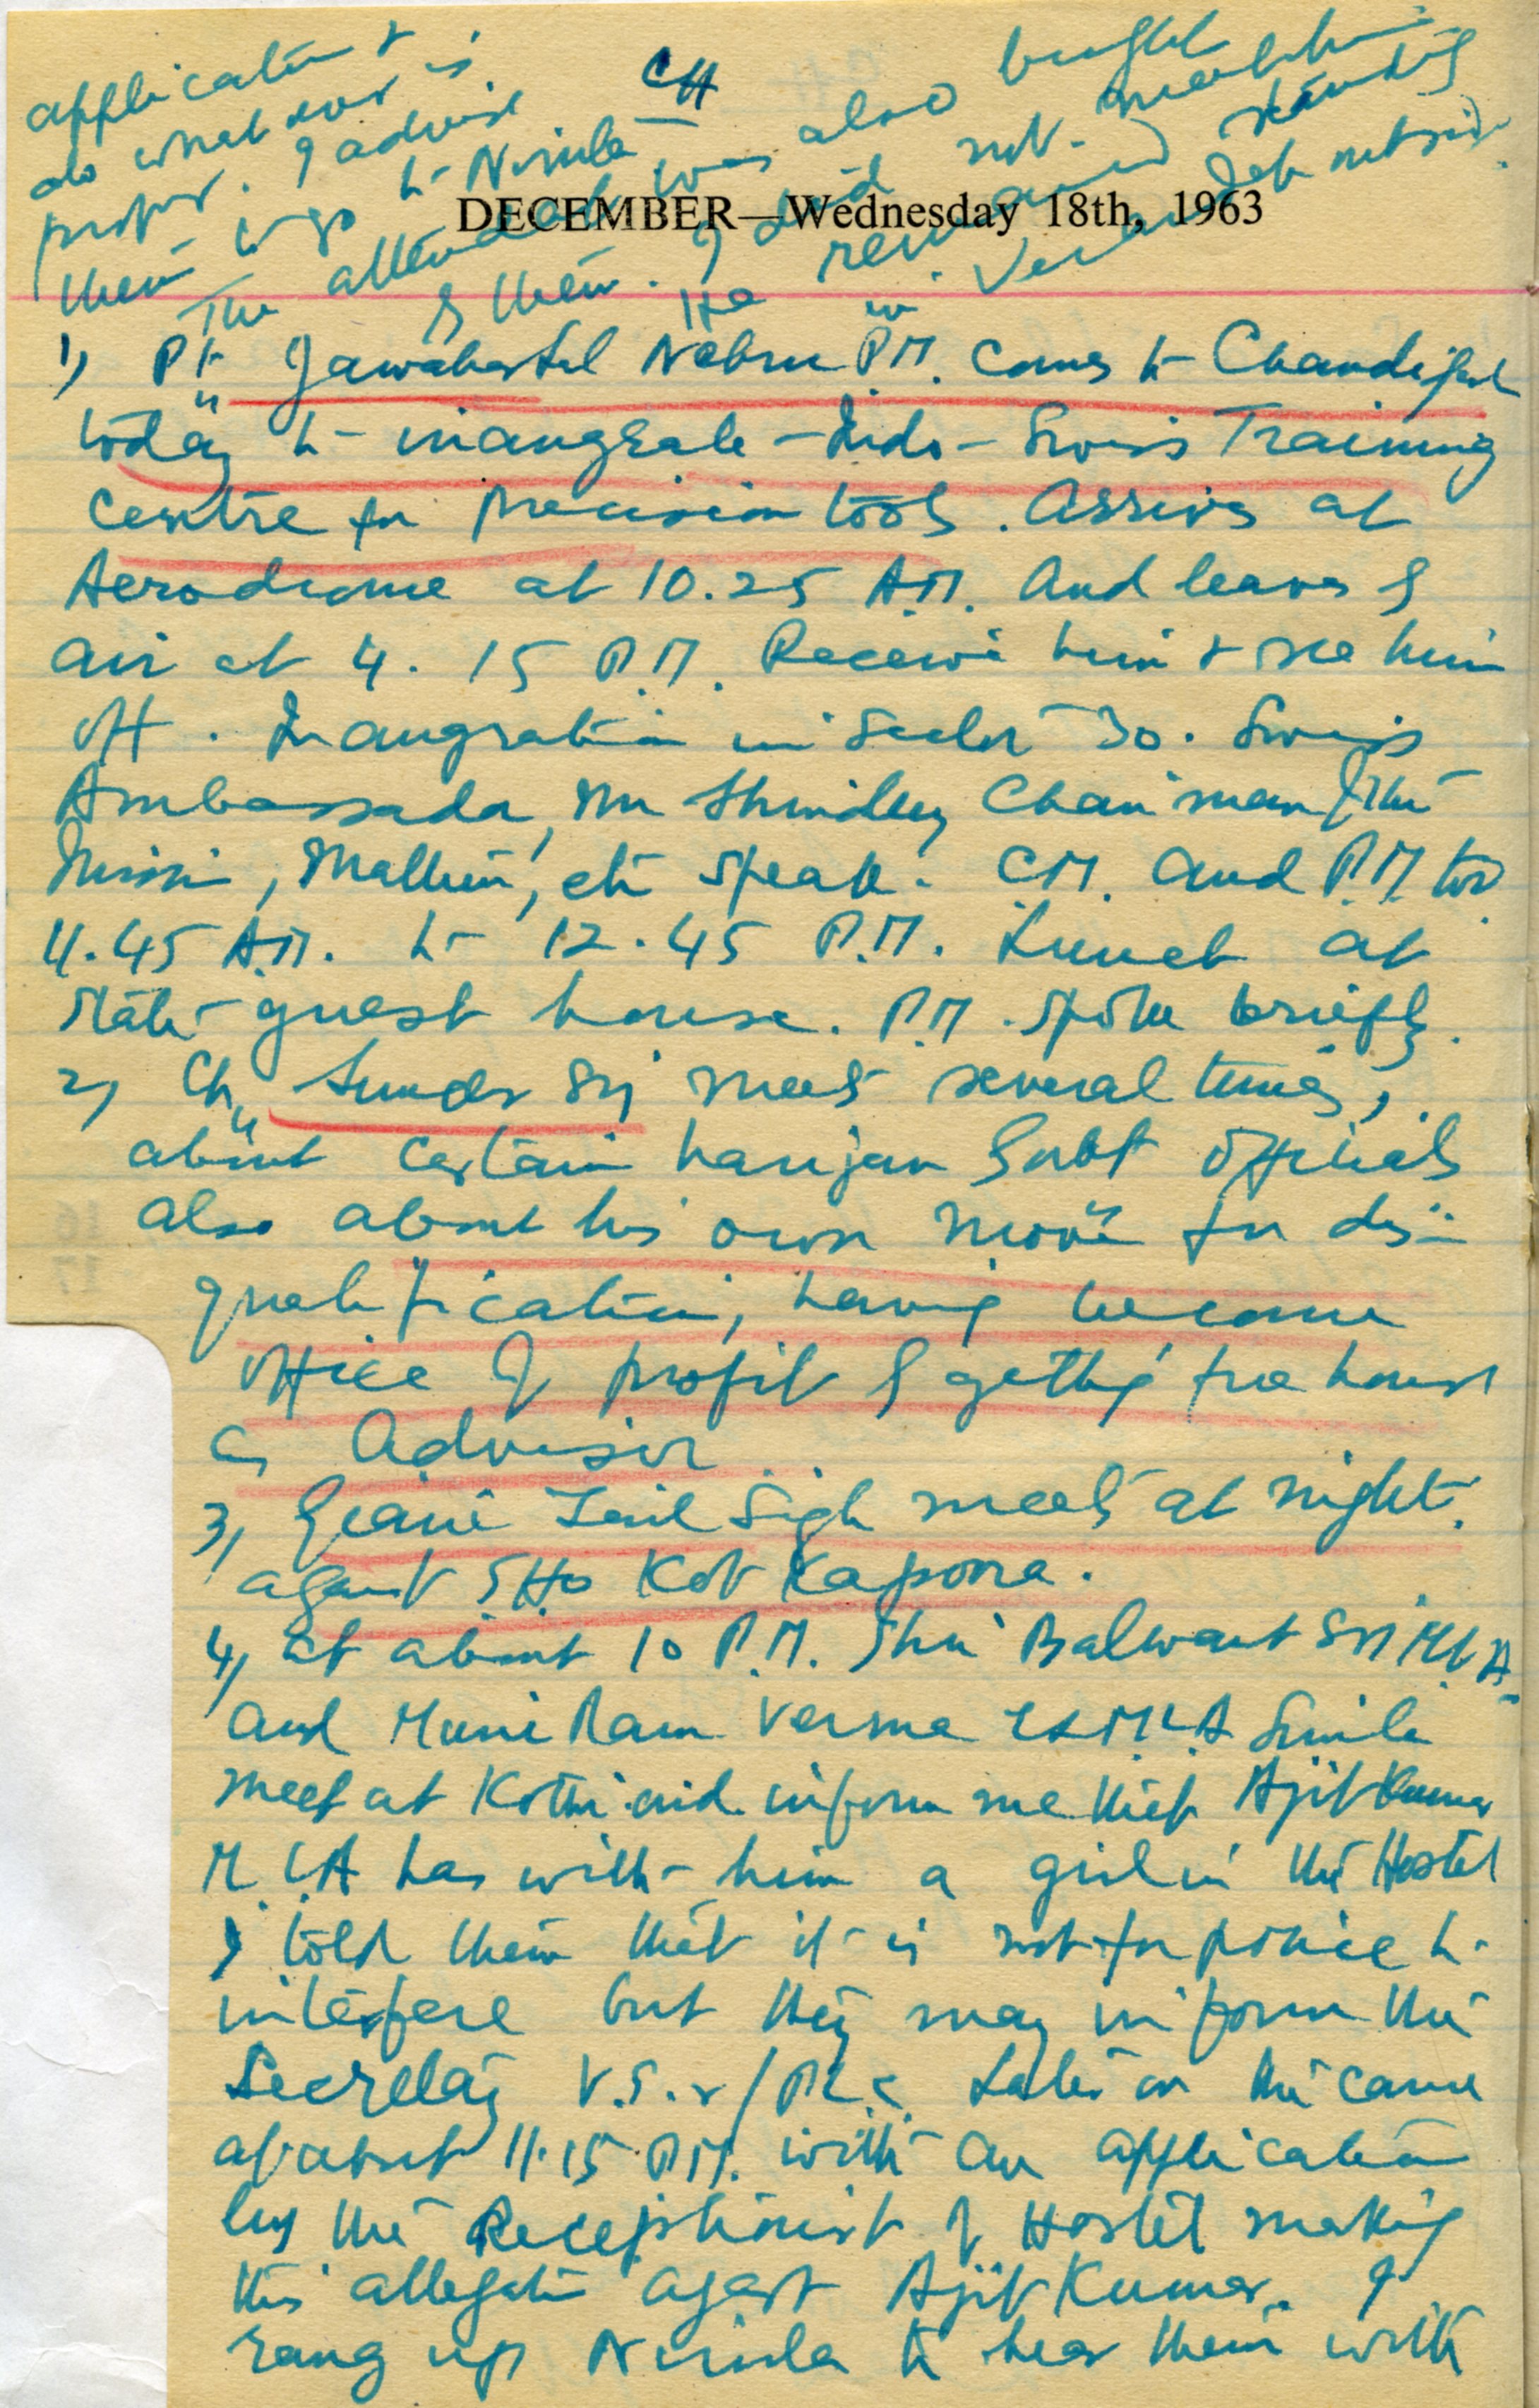 CH
DECEMBER—Wednesday 18th, 1963
1) Pt. Jawaharlal Nehru P.M. comes to Chandigarh
today to inaugrate Indo-Swiss Training
Centre for precision tools. Arrives at
Aerodrome at 10.25 A.M. and leaves by
air at 4.15 P.M. Receive him & see him
off. Inaugration in Sector 30. Swiss
Ambassador, Mr Chairman of the
Mission, etc speak. C.M. and P.M. too
11.45 A.M. to 12.45 P.M. Lunch at
State guest house. P.M. spoke briefly.
2) Ch. Sunder Singh meets several times,
about certain harijan Govt officials
also about his own move for dis-
qualification, having become
office of profit by getting free house
as Advisor
3) Giani Zail Singh meets at night.
against SHO Kot Kapoora.
4) At about 10 P.M. Shri Balwant Singh MLA
and Muni Ram Verma Ex M.L.A
meet at Kothi and inform me that Ajit Kumar
M.L.A has with him a girl in the Hostel
I told them that it is not for police to
interfere but they may inform the
Secretary V.S. Later on they came
at about 11.15 P.M. with an application
by the Receptionist of Hostel making
this allegation against Ajit Kumar. I
rang up Nirula to hear them with
application &
do whatever is
proper. I advise
them to go to Nirula
The attendant was also brought
by them. I did not meet him
He remained standing
in Verandah outside.